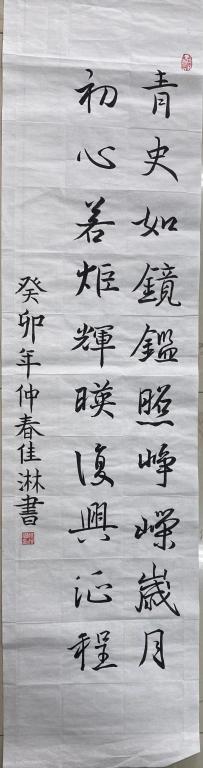 青史如鏡鑑照崢嶸歲月
初心若炬輝暎復興征程
癸卯年仲春佳淋書